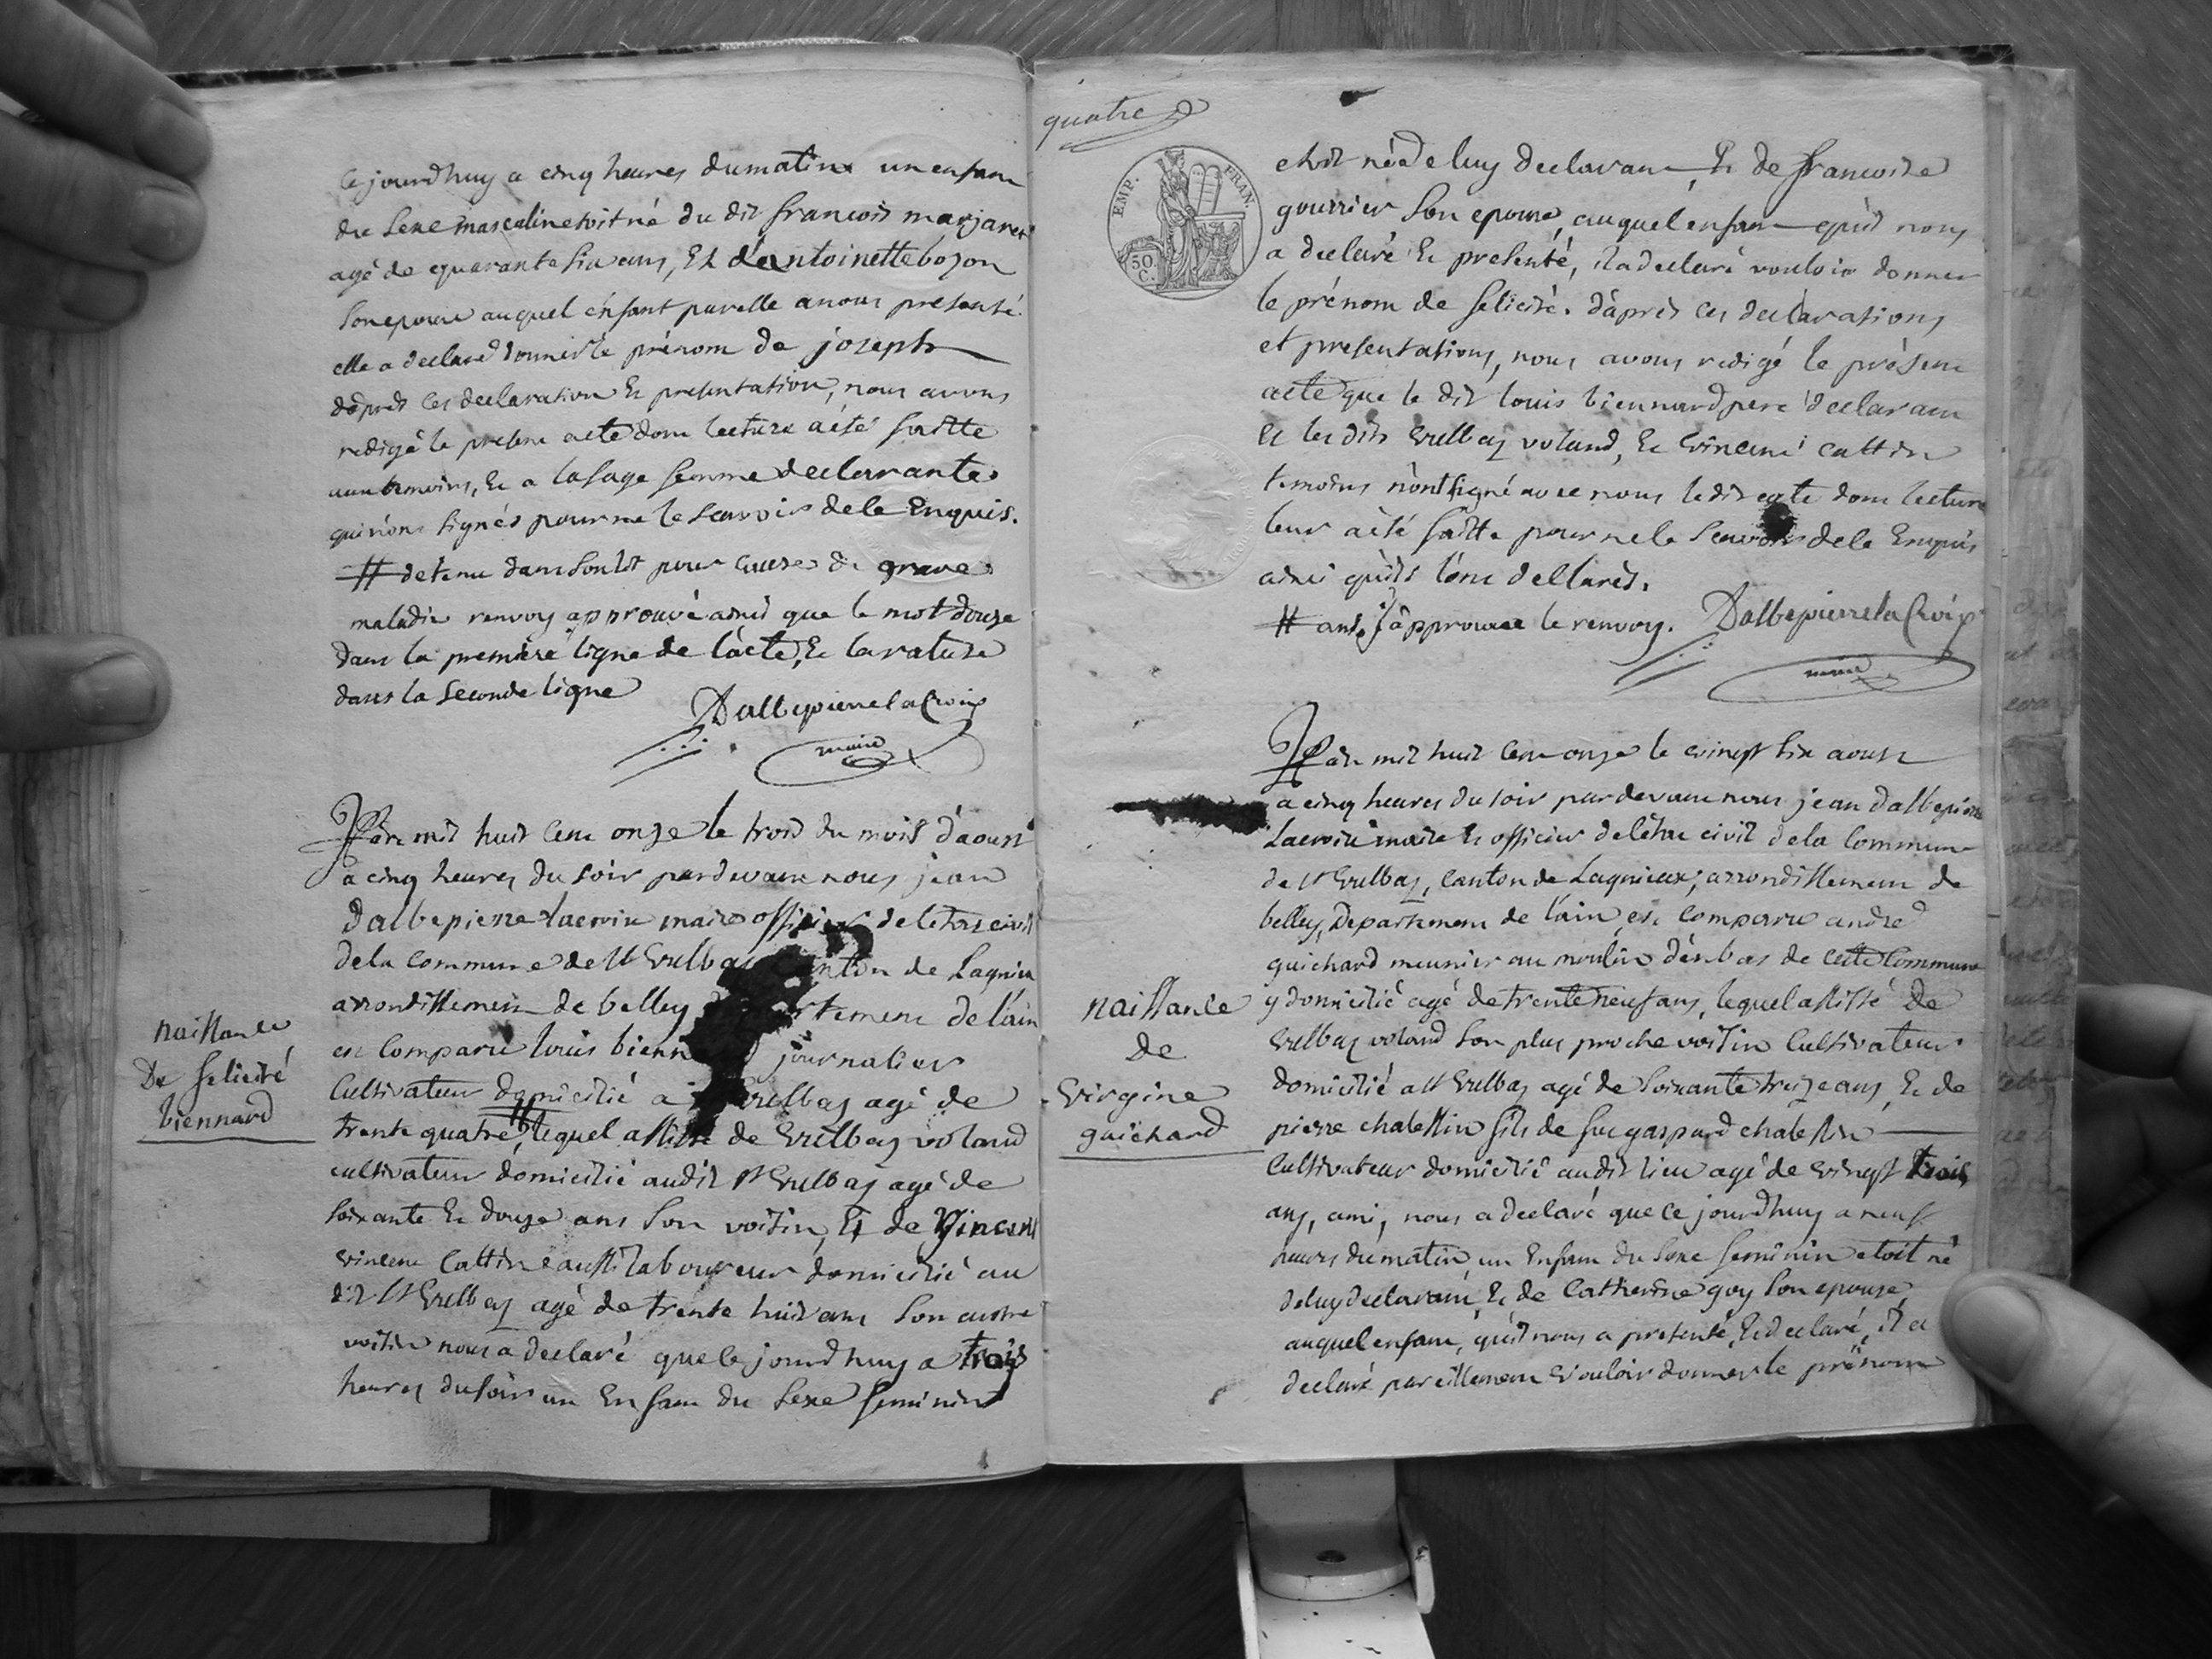 ce jourdhuy a cinq heures du matin un enfant
du sexe masculin etoit né du dit francois marjaret
agé de quarante six ans, Et d'antoinette bozon
son epouse auquel enfant par elle a nous presenté
elle a declaré donner le prénom de joseph
d'après ces declaration Et presentation, nous avons
redigé le present acte dont lecture a été faitte
aux temoins, Et a la sage femme declarante
qui n'ont signés pour ne le scavoir de le Enquis.
# detenu dans son lit pour cause de grave
maladie renvoy approuvé ainsi que le mot douze
dans la premiere ligne de l'acte, Et la rature
dans la seconde ligne
Dalbepierrelacroix
maire
naissance
De felicité
biennard
L'an mil huit cent onze le trois du mois d'aoust
a cinq heures du soir pardevant nous jean
Dalbepierre lacroix maire officier de letat civil
de la commune de St Vulbas canton de Lagnieu
arrondissement de belley departement de l'ain
est comparu louis biennard journalier
Cultivateur domicilié a St Vulbas agé de
trente quatre, # lequel assisté de Vulbas voland
cultivateur domicilié audit St Vulbas agé de
soixante Et douze ans son voisin, Et de Vincent
vincent Cattin aussi laboureur domicilié au
dit St Vulbas agé de trente huit ans son autre
voisin nous a declaré que ce jourdhuy a trois
heures du soir un Enfant du sexe feminin
quatre
EMP. FRAN.
50 C.
etoit né de luy declarant, Et de francoise
gourrier son epouse, auquel enfant qu'il nous
a declaré Et presenté, il a declaré vouloir donner
le prénom de felicité. d'après ces declarations
et presentations, nous avons redigé le présent
acte que le dit louis biennard pere declarant
Et les dits Vulbas voland, Et vincent cattin
temoins n'ont signé avec nous le dit acte dont lecture
leur a été faitte pour ne le scavoir de le Enquis
ainsi qu'ils l'ont dellarés.
# ans. approuvé le renvoy. Dalbepierrelacroix
maire
naissance
de
Virgine
guichard
L'an mil huit cent onze le vingt six aoust
a cinq heures du soir pardevant nous jean dalbepierre
Lacroix maire Et officier de létat civil de la commune
de St Vulbas, canton de Lagnieux, arrondissement de
belley, Departement de l'ain, est comparu andré
guichard meunier au moulin d'en bas de cette commune
y domicilié agé de trente neuf ans, lequel assisté De
Vulbas voland son plus proche voisin Cultivateur
domicilié a St Vulbas agé de soixante treize ans, Et de
pierre chabessin fils de feu gaspard chabessin
Cultivateur domicilié audit lieu agé de vingt trois
ans, ami, nous a declaré que ce jourdhuy a neuf
heures du matin un Enfant du sexe feminin etoit né
de luy declarant, Et de Catherine guy son epouse,
auquel enfant, qu'il nous a presenté, Et declaré, il a
declaré pareillement vouloir donner le prénom